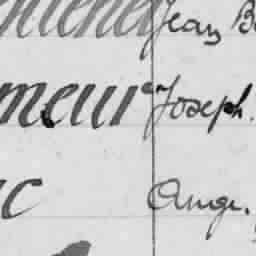 Jean B
meur Joseph.
c Ange.